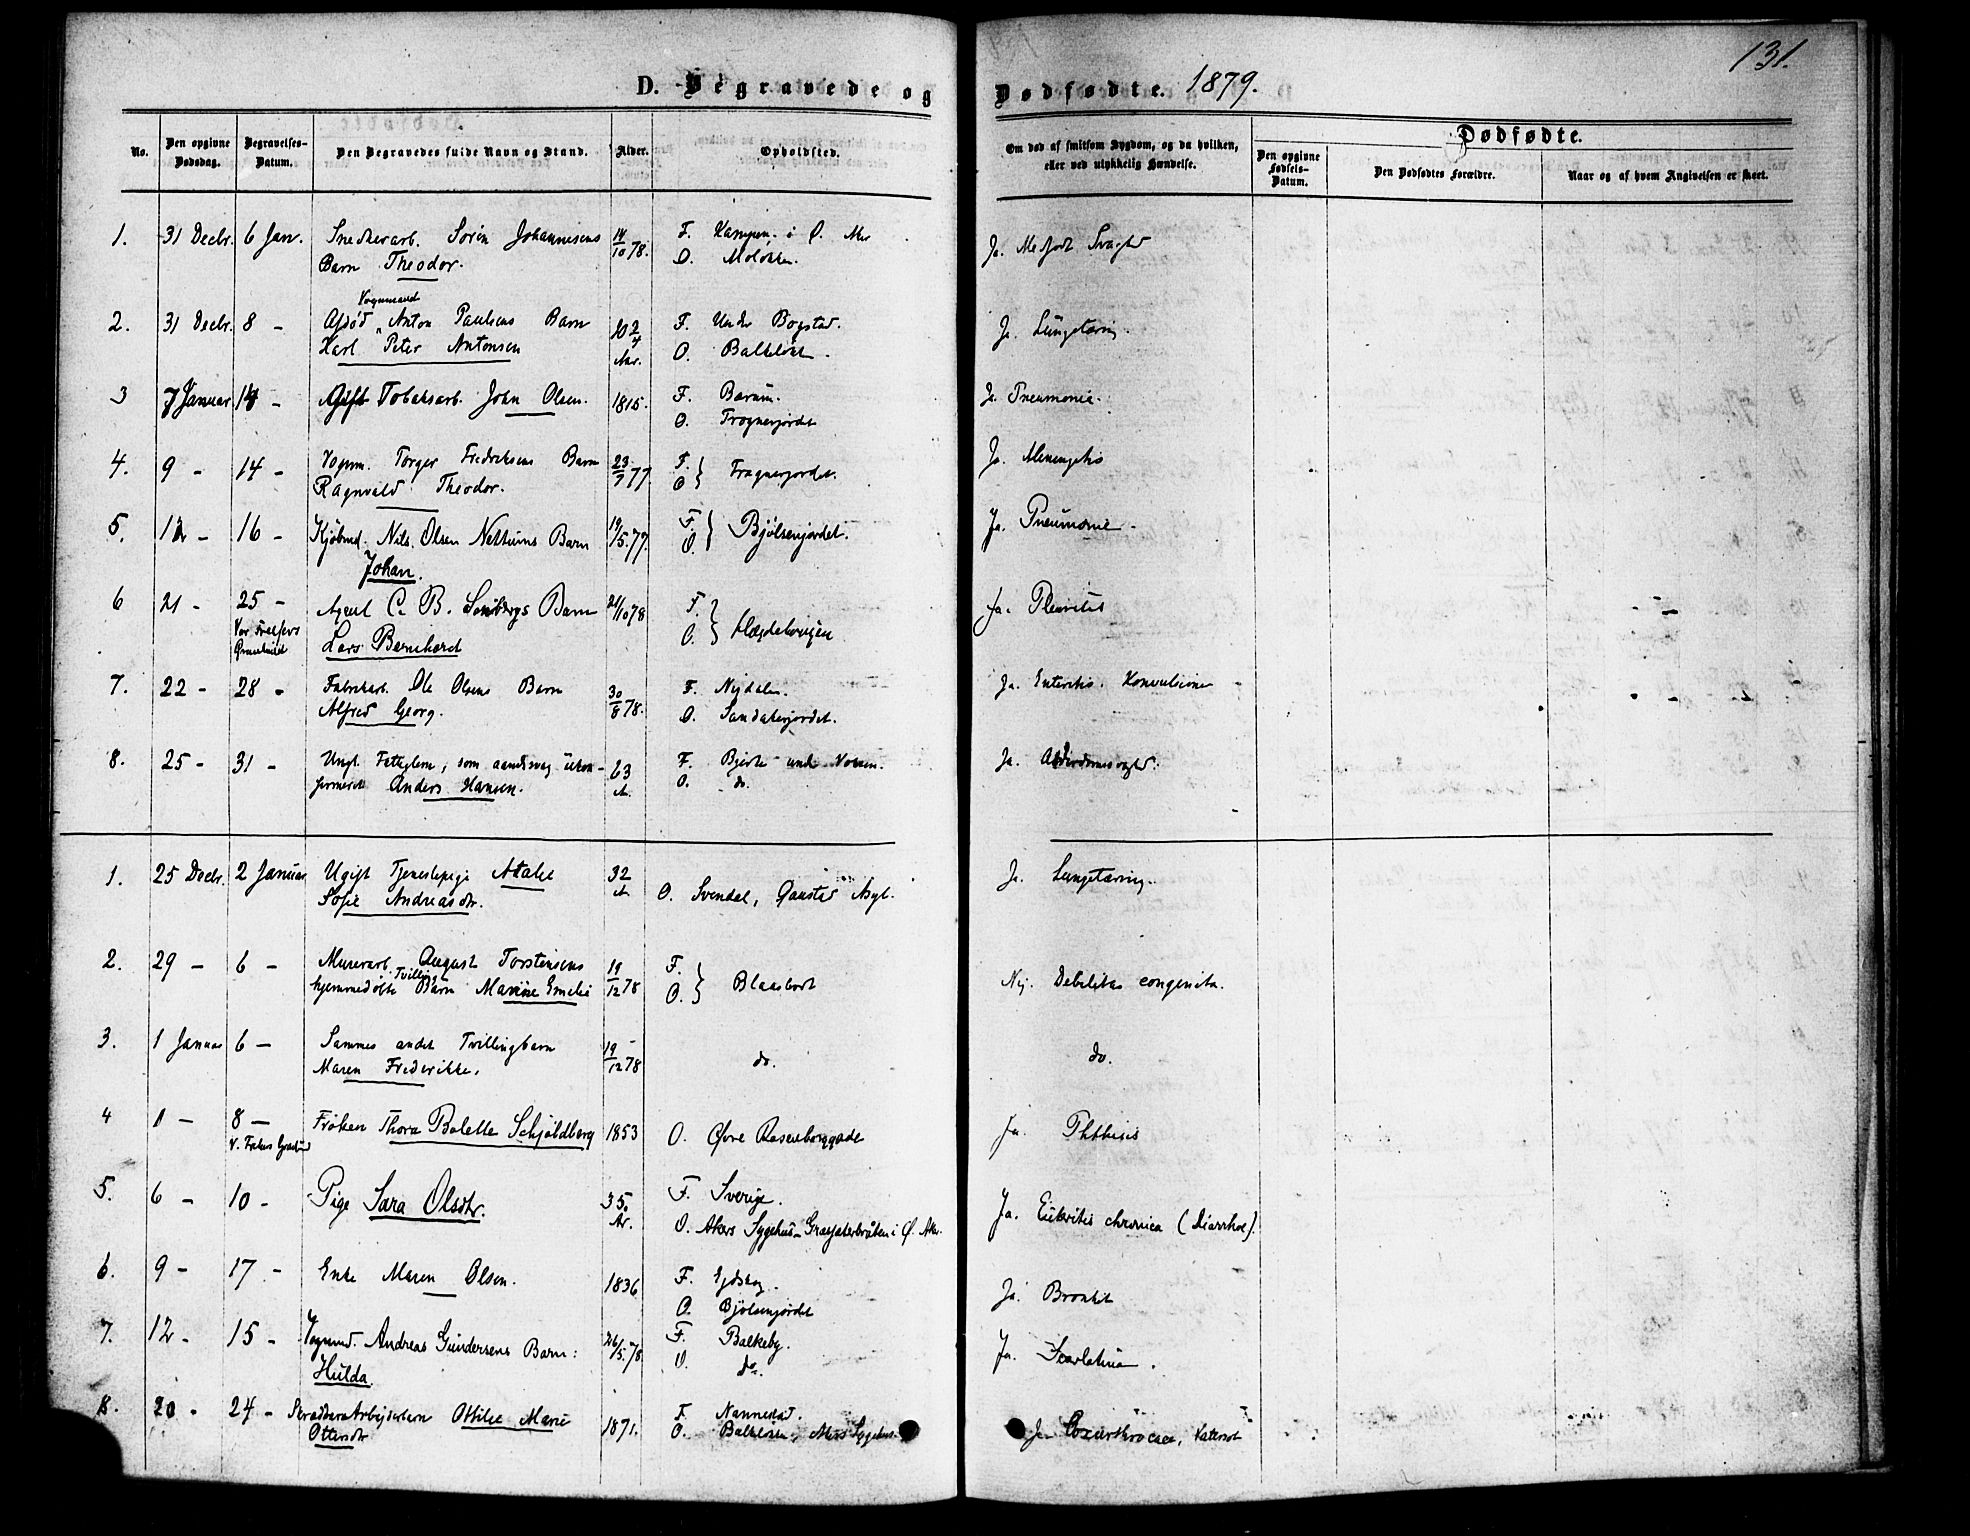 131.
D. Begravede og Dødfødte. 1879.
No.
Den opgivne Dødsdag.
Begravelses-Datum.
Den Begravedes fulde Navn og Stand.
Alder.
Opholdssted.
Om død af smitsom Sygdom, og da hvilken, eller ved ulykkelig Hændelse.
Dødfødte.
Den opgivne Fødsels-Datum.
Den Dødfødtes Forældre.
Naar og af hvem Angivelsen er skeet.
1. 31 Decbr. 6 Jan. Snedkerarb. Sørin Johannesens 14/10 78. F. Kampen i Ø. Aker Ja. Medfødt Svaghed
Barn Theodor. O. Moløkken.
Vognmand
2. 31 Decbr. 8 - Afdød Anton Paulsens Barn 10 2/4 Aar. F. Under Bogstad. Ja. Lungetæring.
Karl Peter Antonsen O. Balkeløkk.
3 7 Januar 14 - Gift Tobaksarb. John Olsen. 1815. F. Bærum. Ja. Pneumonie.
O. Frognerjordet
4. 9 - 14 - Vognm. Torger Fredriksens Barn 23/7 77 F. O. Frognerjordet. Ja. Meningitis
Ragnvald Theodor.
5. 12 - 16 - Kjøbmd. Nils Olsen Nettums Barn 19/5. 77. F. O. Bjølsenjordet. Ja. Pneumonie.
Johan.
6 21 - 25 - Agent C. B. Barn 21/10 78 F. O. Hægdehougen Ja. Pleuritis
Vor Frelsers Gravlund Lars Bernhard
7. 22 - 28 - Fabrikarb. Ole Olsens Barn 30/8 78. F. Nydalen. Ja. Enteritis. Konvulsioner
Alfred Georg. O. Sandakerjordet.
8. 25 - 31 - Ungk. Fattiglem, som aandssvag ukon- 63 A. F. Bjerke under Vollen. Ja. Alderdomssvaghed.
firmeret Anders Hansen. O. do.
1. 25 Decbr. 2 Januar Ugift Tjenestepige Atalie 32 A Ja. Lungetæring.
Sofie Andreasdtr. O. Svendal, Gausta Asyl.
2. 29 - 6 - Murerarb. August Torstensens 19/12 78 F. O. Blaasbort Nej. Debilitas congenita.
hjemmedøbte Tvilling Barn Marine Emelie
3. 1 Januar 6 - Sammes andet Tvillingbarn 19/12 78 do. do.
Maren Frederikke.
4 1 - 8 - Frøken Thora Bolette Schjøldberg 1853 O. Øvre Rosenborggade Ja. Phthisis
V. Frelsers Gravlund
5. 6 - 10 - Pige Sara Olsdtr. 35. Ar. F. Sverige. Ja. Enteritis chronica (Diarrhoe).
O. Akers Sygehus - i Ø. Aker.
6. 9 - 17 - Enke Maren Olsen. 1836 F. Eidskog. Ja. Bronkit
O. Bjølsenjordet
7. 12 - 15 - Vognmd. Andreas Gundersens Barn: 26/5. 78 F. Balkeby. Ja. Scarlatina.
Hulda. O. do.
8. 20 - 24 - Arbejderbarn Ottilie Marie 1871. F. Nannestad. Ja Coxarthrocace,
Ottersdtr O. Balkeløkk, Akers Sygehus.